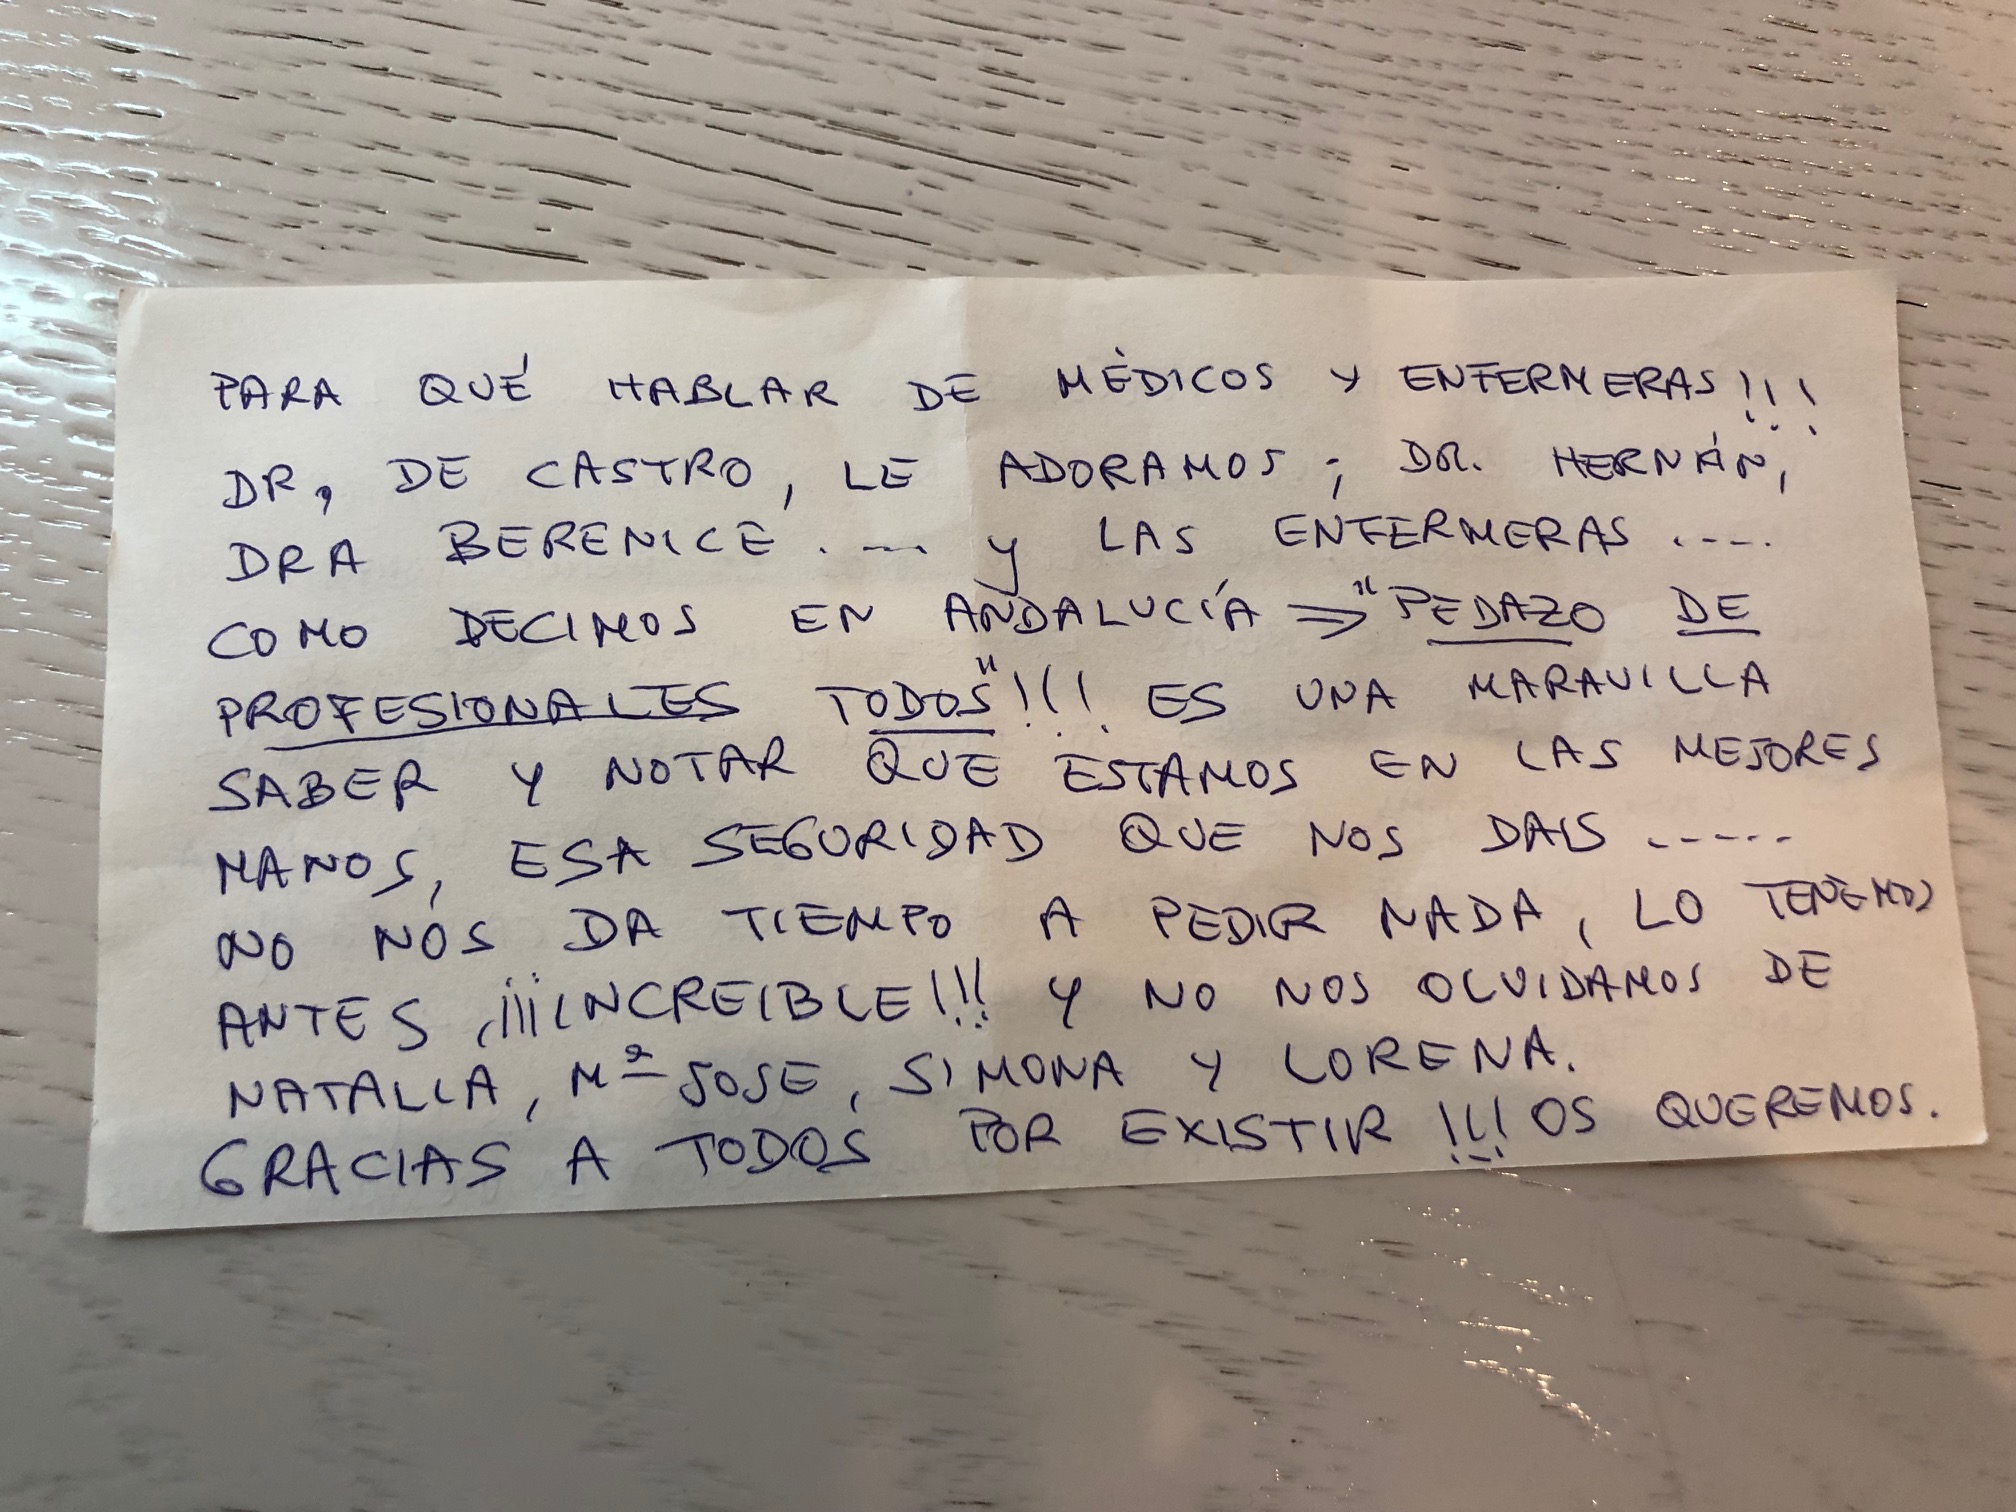 PARA QUÉ HABLAR DE MÉDICOS Y ENFERMERAS!!!
DR, DE CASTRO, LE ADORAMOS; DR. HERNÁN,
DRA BERENICE .... Y LAS ENFERMERAS ....
COMO DECIMOS EN ANDALUCÍA ⇒ "PEDAZO DE
PROFESIONALES TODOS"!!! ES UNA MARAVILLA
SABER Y NOTAR QUE ESTAMOS EN LAS MEJORES
MANOS, ESA SEGURIDAD QUE NOS DAIS .....
NO NOS DA TIEMPO A PEDIR NADA, LO TENEMOS
ANTES, ¡¡¡INCREIBLE!!! Y NO NOS OLVIDAMOS DE
NATALIA, Mª JOSE, SIMONA Y LORENA.
GRACIAS A TODOS POR EXISTIR !!! OS QUEREMOS.